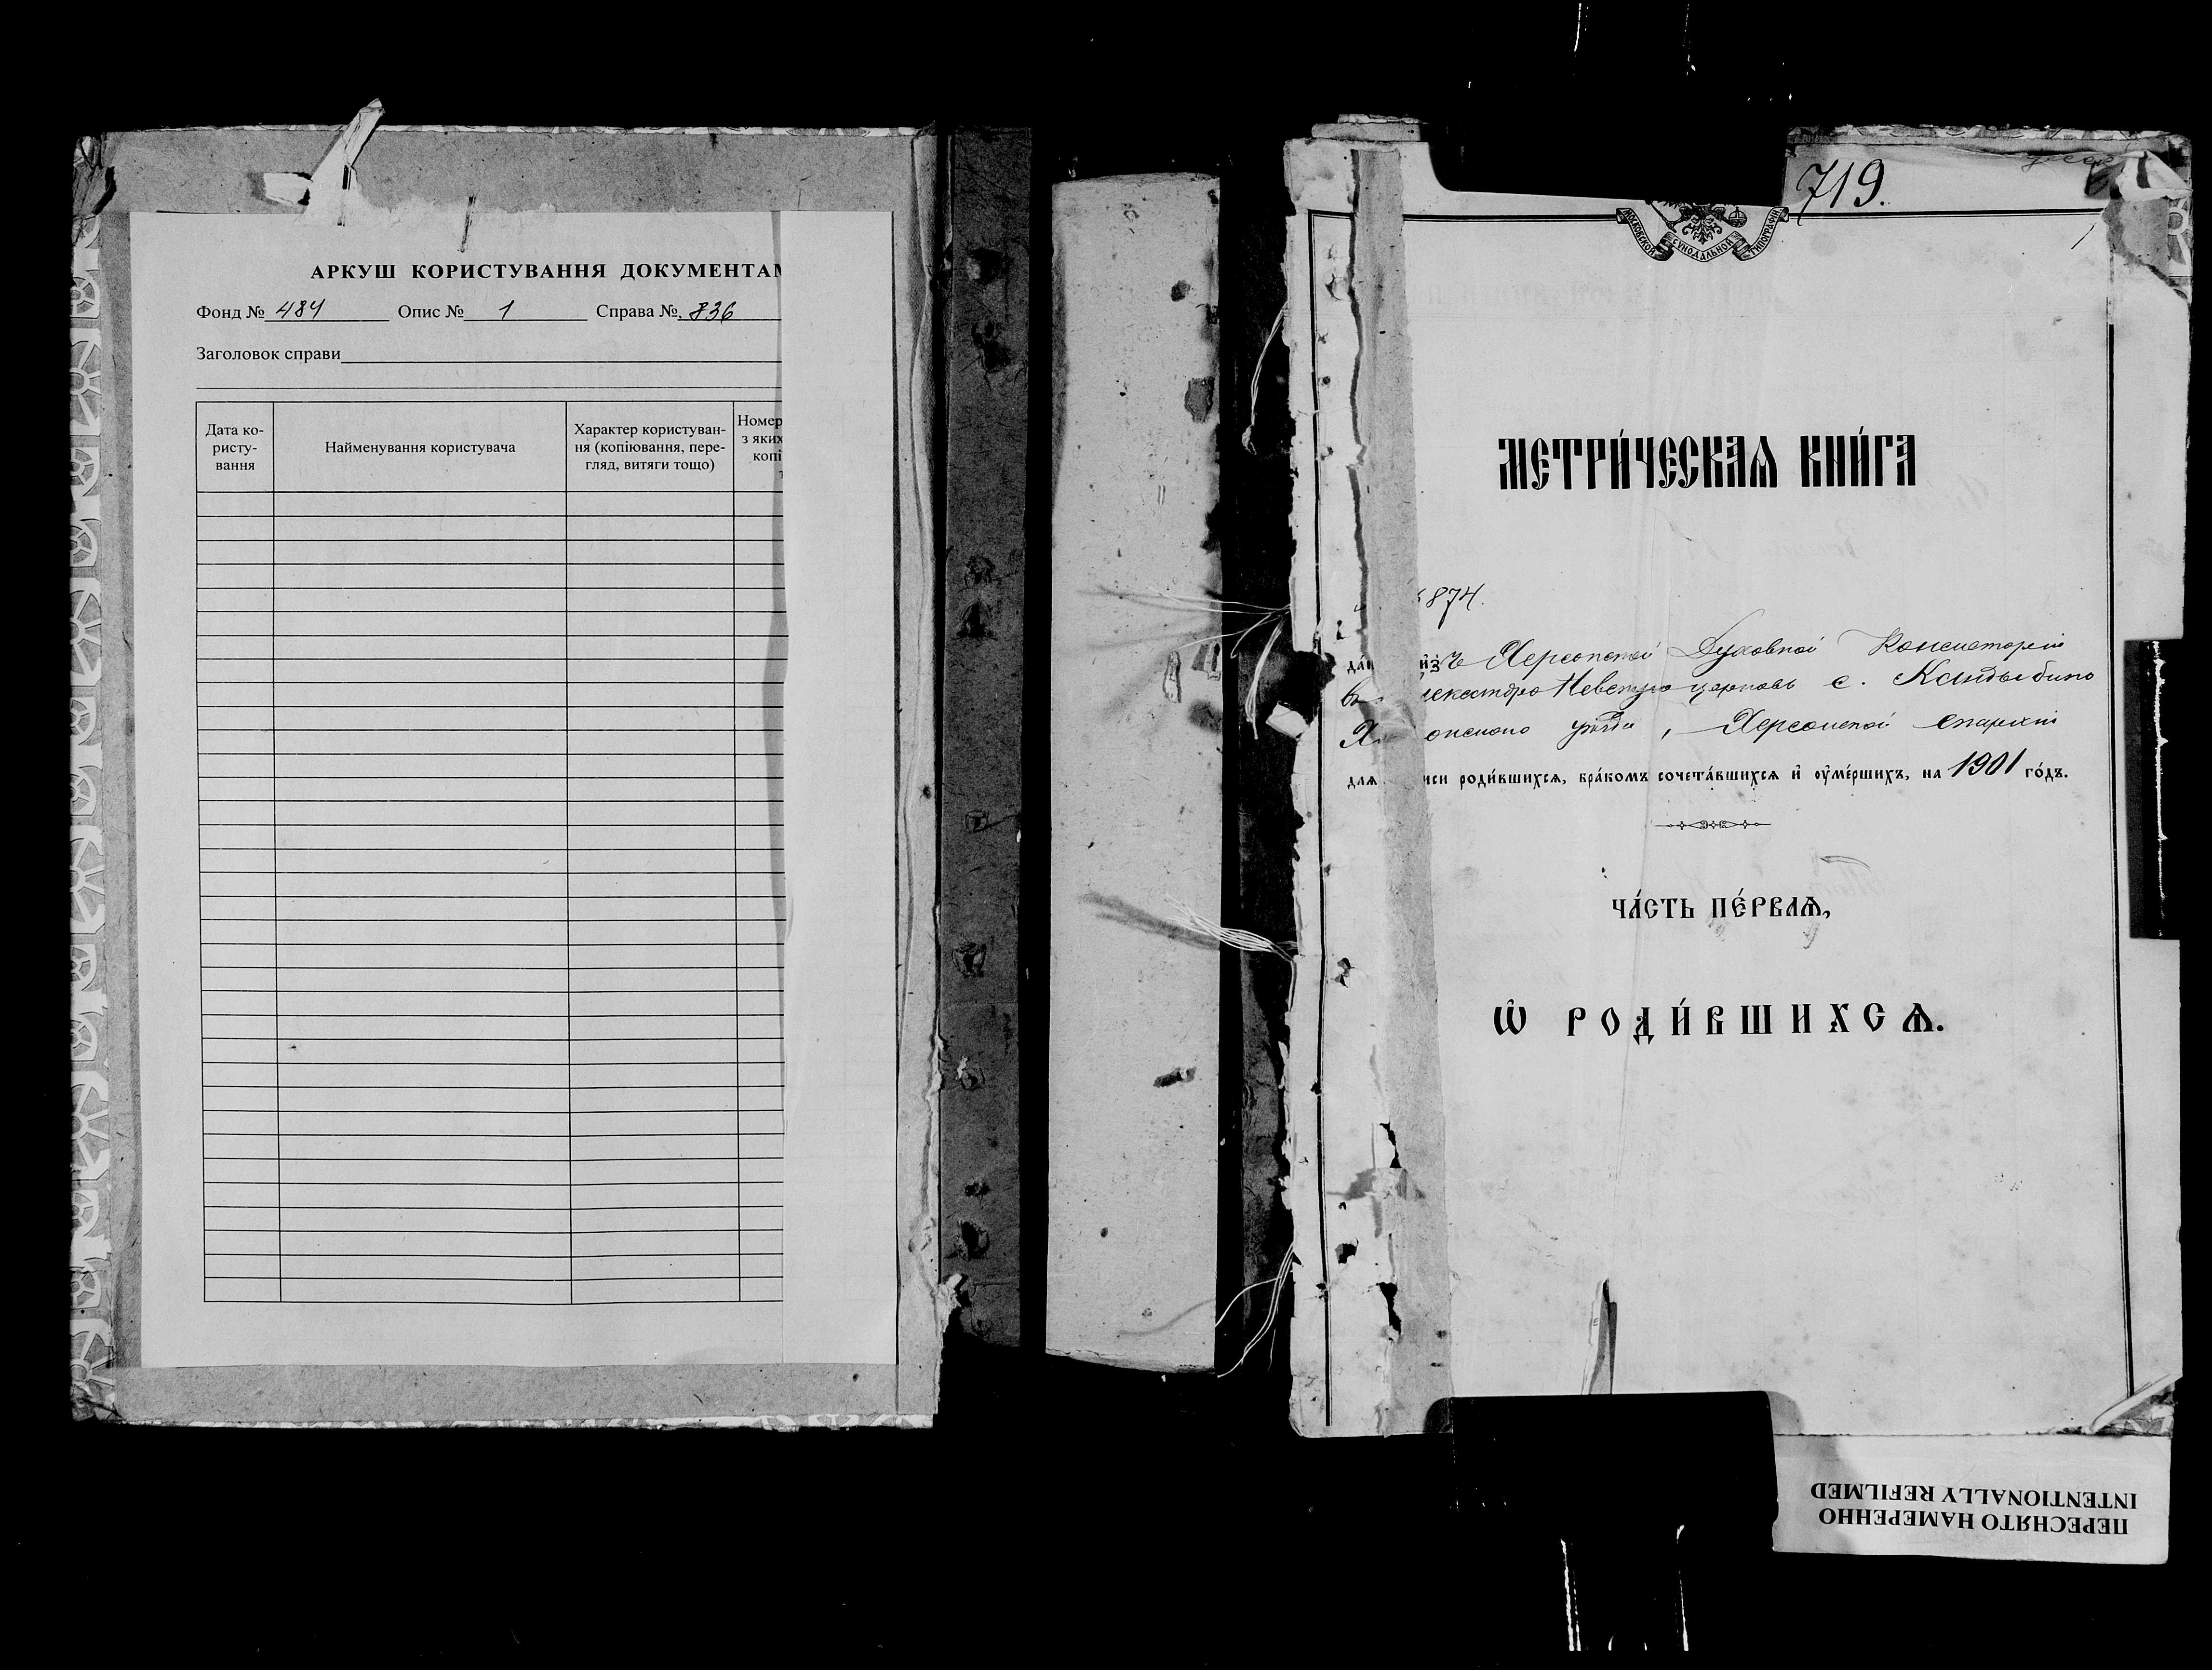 АРКУШ КОРИСТУВАННЯ ДОКУМЕНТАМ
Фонд № 484 Опис № 1 Справа № 836
Заголовок справи
Дата ко-
ристу-
вання
Найменування користувача
Характер користуван-
ня (копіювання, пере-
гляд, витяги тощо)
Номер
з яких
копі
719.
МОСКОВСКОЙ СѴНОДАЛЬНОЙ ТИПОГРАФІИ
МЕТРИ́ЧЕСКАѦ КНИ́ГА
874.
да́ и҆зъ Херсонской Духовной Консисторіи
лександро Невскую церковь с. Кандыбино
онскаго уѣзда, Херсонской епархіи
для иси роди́вшихсѧ, бра́комъ сочета́вшихсѧ и҆ ᲂу҆ме́ршихъ, на 1901 го́дъ.
ЧА́СТЬ ПЕ́РВАѦ,
Ѽ РОДИ́ВШИХСѦ.
ПЕРЕСНЯТО НАМЕРЕННО
INTENTIONALLY REFILMED